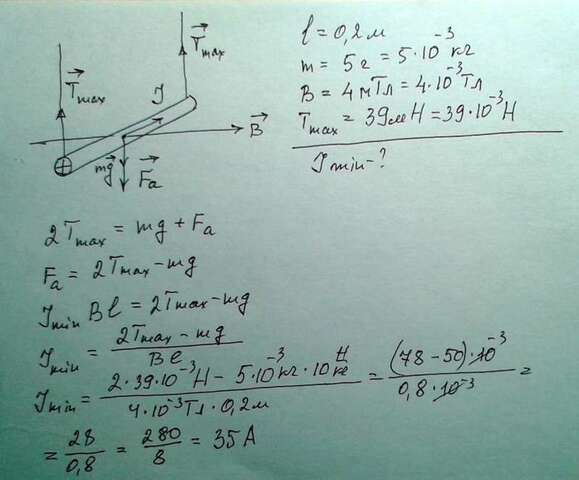 T⃗max
T⃗max
I
B⃗
mg⃗
F⃗a
l = 0,2 м
m = 5 г = 5·10⁻³ кг
B = 4 мТл = 4·10⁻³ Тл
Tmax = 39 мН = 39·10⁻³ Н
Imin - ?
2Tmax = mg + Fa
Fa = 2Tmax - mg
Imin Bl = 2Tmax - mg
Imin = (2Tmax - mg) / Bl
Imin = (2·39·10⁻³ Н - 5·10⁻³ кг·10 Н/кг) / (4·10⁻³ Тл·0,2 м) = ((78 - 50)·10⁻³) / (0,8·10⁻³) =
= 28/0,8 = 280/8 = 35 А